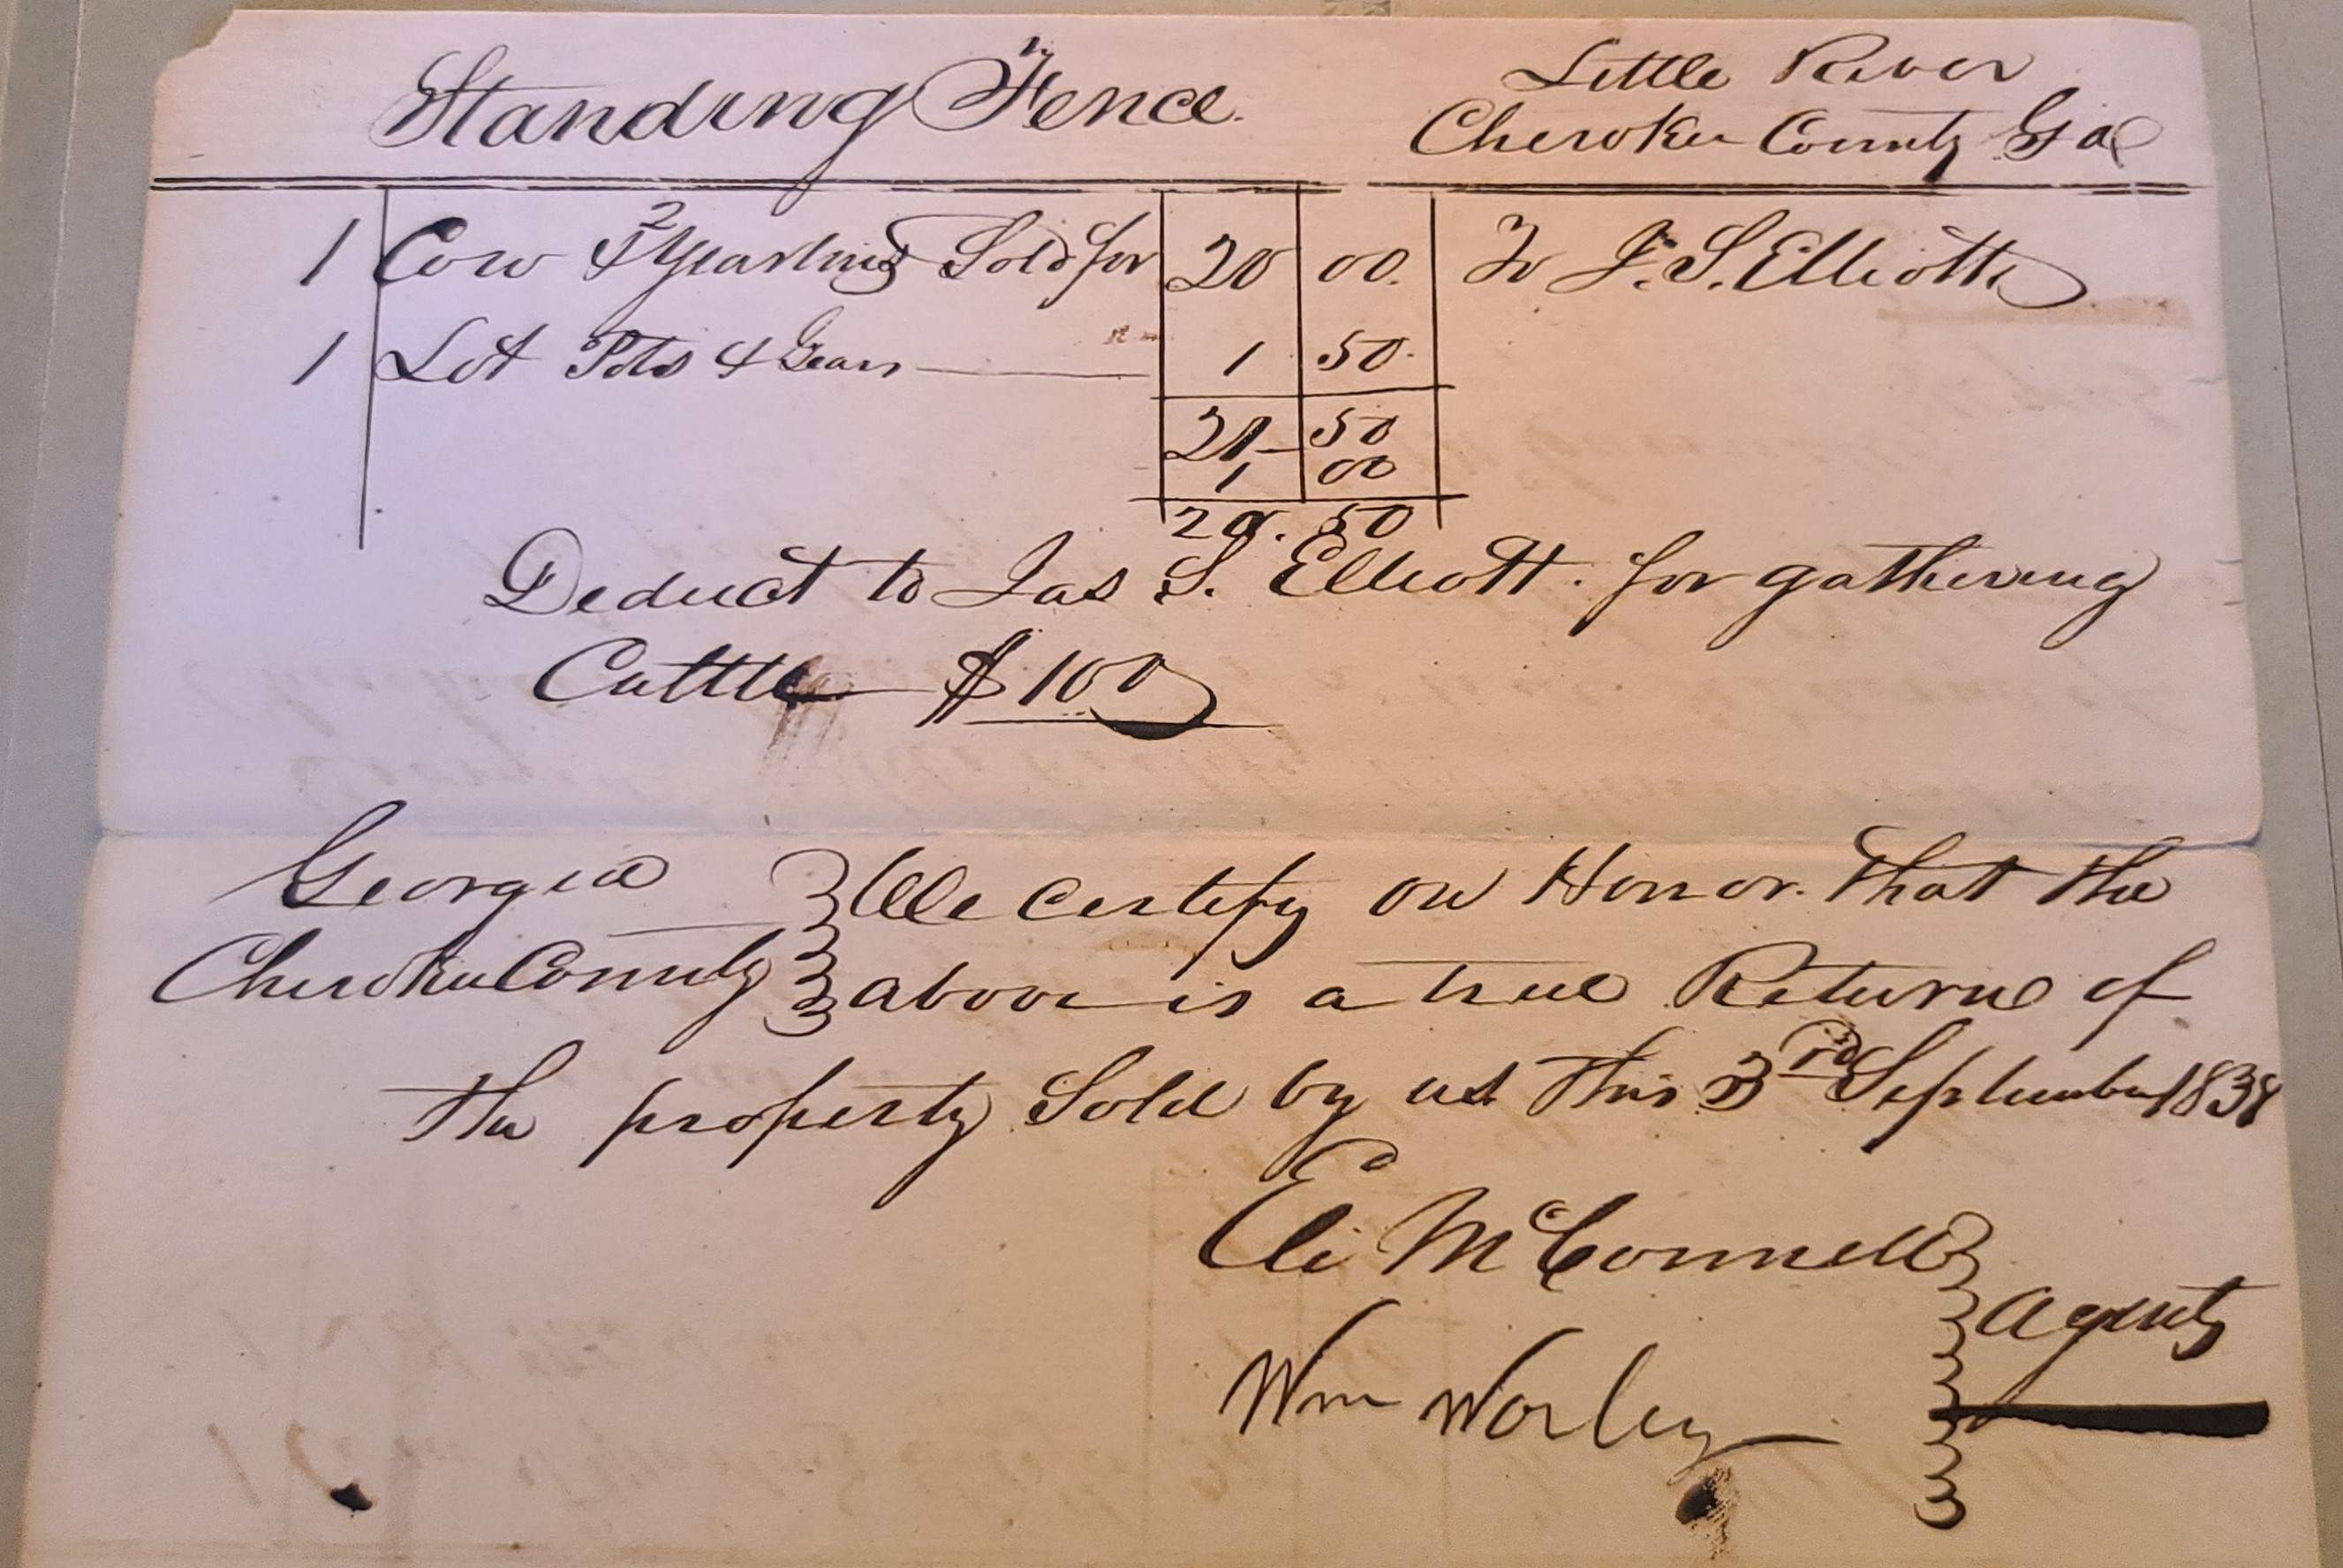 Standing Fence.
Little River
Cherokee County Ga
1 Cow & 2 Yearlings Sold for 20 00. To J. S. Elliott
1 Lot Pots & Gears 1 50
21 50
1 00
20. 50
Deduct to Jas S. Elliott. for gathering
Cattle $ 1 00
Georgia We certify on Honor. that the
Cherokee County above is a true Return of
the property Sold by us this 3rd September 1838
Eli McConnell
Agents
Wm Worley